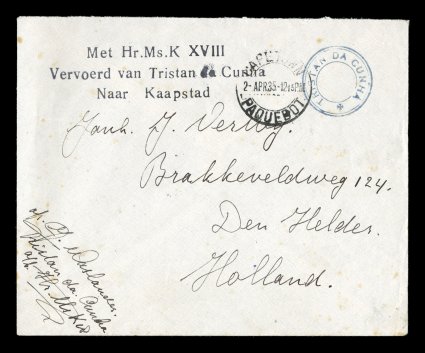 Met Hr.Ms.K XVIII
Vervoerd van Tristan da Cunha
Naar Kaapstad
CAPETOWN
2-APR35-12 15PM
PAQUEBOT
TRISTAN DA CUNHA
J. Vertog.
Brakkeveldweg 124.
Den Helder.
Holland.
Tristan da Cunha